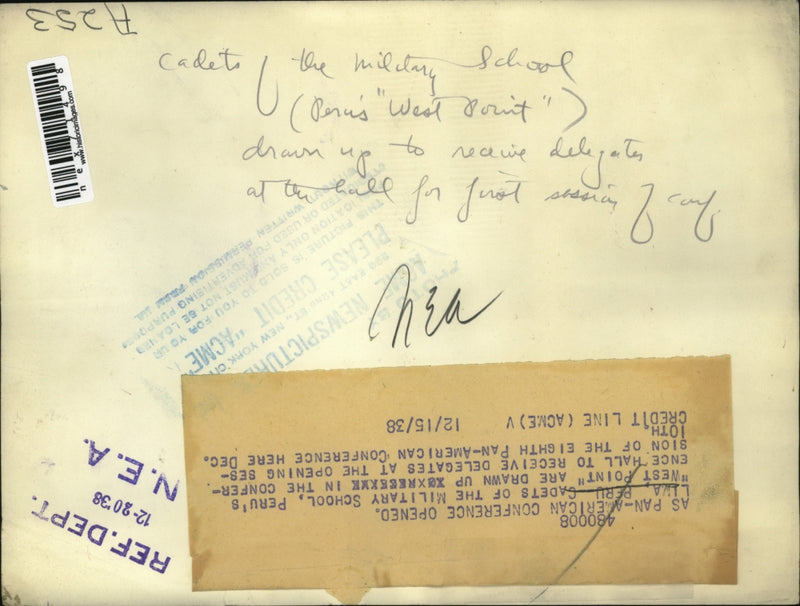 A253
nex71498
www.historicimages.com
Cadets of the Military School
(Peru's "West Point")
drawn up to receive delegates
at the hall for first session of conf.
NEA
PHOTO BY
ACME NEWSPICTURES
EAST 42ND ST., NEW YORK CITY
PLEASE CREDIT "ACME"
THIS PICTURE IS SOLD TO YOU FOR YOUR
PUBLICATION ONLY AND MUST NOT BE LOANED
OR USED FOR ADVERTISING PURPOSES
WRITTEN PERMISSION FROM US
480008
AS PAN-AMERICAN CONFERENCE OPENED.
LIMA, PERU CADETS OF THE MILITARY SCHOOL, PERU'S
"WEST POINT" ARE DRAWN UP IN THE CONFER-
ENCE HALL TO RECEIVE DELEGATES AT THE OPENING SES-
SION OF THE EIGHTH PAN-AMERICAN CONFERENCE HERE DEC.
10TH
CREDIT LINE (ACME) V 12/15/38
REF. DEPT.
12-20'38
N.E.A.